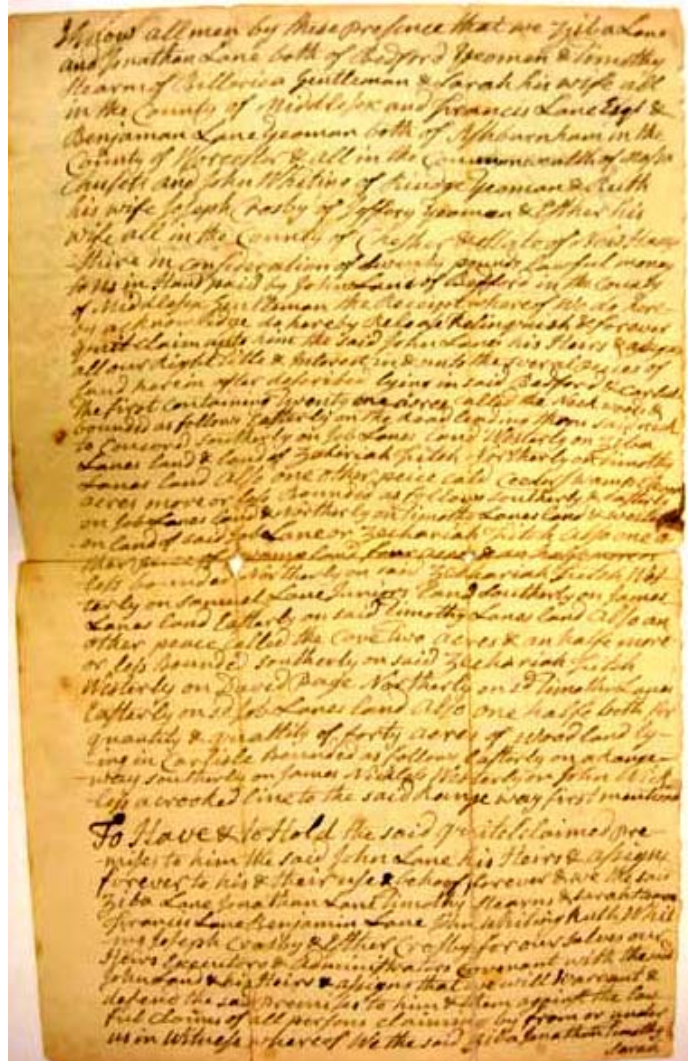 Know all men by these presence that we Ziba Lane
and Jonathan Lane both of Bedford Yeomen & Timothy
Stearns of Billerica Gentleman & Sarah his wife all
in the County of Middlesex and Francis Lane Esqr &
Benjaman Lane yeoman both of Ashburnham in the
County of Worcester & all in the Commonwealth of Massa
chusets and John Whiting of Rindge Yeoman & Ruth
his wife Joseph Crosby of Jaffery yeoman & Esther his
wife all in the County of Chesher & State of New Hamp
-shire in consideration of twenty pounds lawful money
to us in Hand paid by John Lane of Bedford in the County
of Middlesex Gentleman the Receipt whereof We do here-
by acknowledge do hereby Release Relinquish & forever
quit claim unto him the said John Lane his Heirs & assigns
all our Right Title & Interest in & unto the several peices of
Land herein after described lying in said Bedford & Carlisle
The first containing twenty one acres called the Neck
bounded as follows Easterly on the Road leading from said
to Concord southerly on Job Lanes Land Westerly on Ziba
Lanes land & land of Zechariah Fitch Northerly on Timothy
Lanes Land Also one other peice cald Ceeder Swamp
acres more or less Bounded as follows southerly & Easterly
on Job Lanes land & Northerly on Timothy Lanes land & westerly
on land of said Job Lane or Zechariah Fitch Also one o-
ther peice of swamp land four acres & an half more or
less bounded Northerly on said Zechariah Fitch Wes-
terly on Samuel Lane Juniors land southerly on James
Lanes land Easterly on said Timothy Lanes land Also an
other peace called the Cove two acres & an halfe more
or less Bounded southerly on said Zechariah Fitch
Westerly on David Page Northerly on sd Timothy Lanes
Easterly on sd Job Lanes land Also one halfe both for
quantity & quallity of forty acres of woodland ly-
-ing in Carlisle Bounded as follows Easterly on a Range-
way southerly on James Nickless Westerly on John Nick
-less a crooked line to the said Range way first mentioned
To Have & to Hold the said quitclaimed pre-
-mises to him the said John Lane his Heirs & assigns
forever to his & their use & behoof forever & we the said
Ziba Lane Jonathan Lane Timothy Stearns & Sarah Stearns
Francis Lane Benjamin Lane John Whiting Ruth Whit
-ing Joseph Crosby & Esther Crosby for our selves our
Heirs Executors & Administrators Covenant with the said
John Lane & his Heirs & assigns that we will Warrant &
defend the said Premises to him & them against the law
ful Claims of all persons claiming by from or under
us in Witness whereof We the said Ziba Jonathan Timothy
Sarah